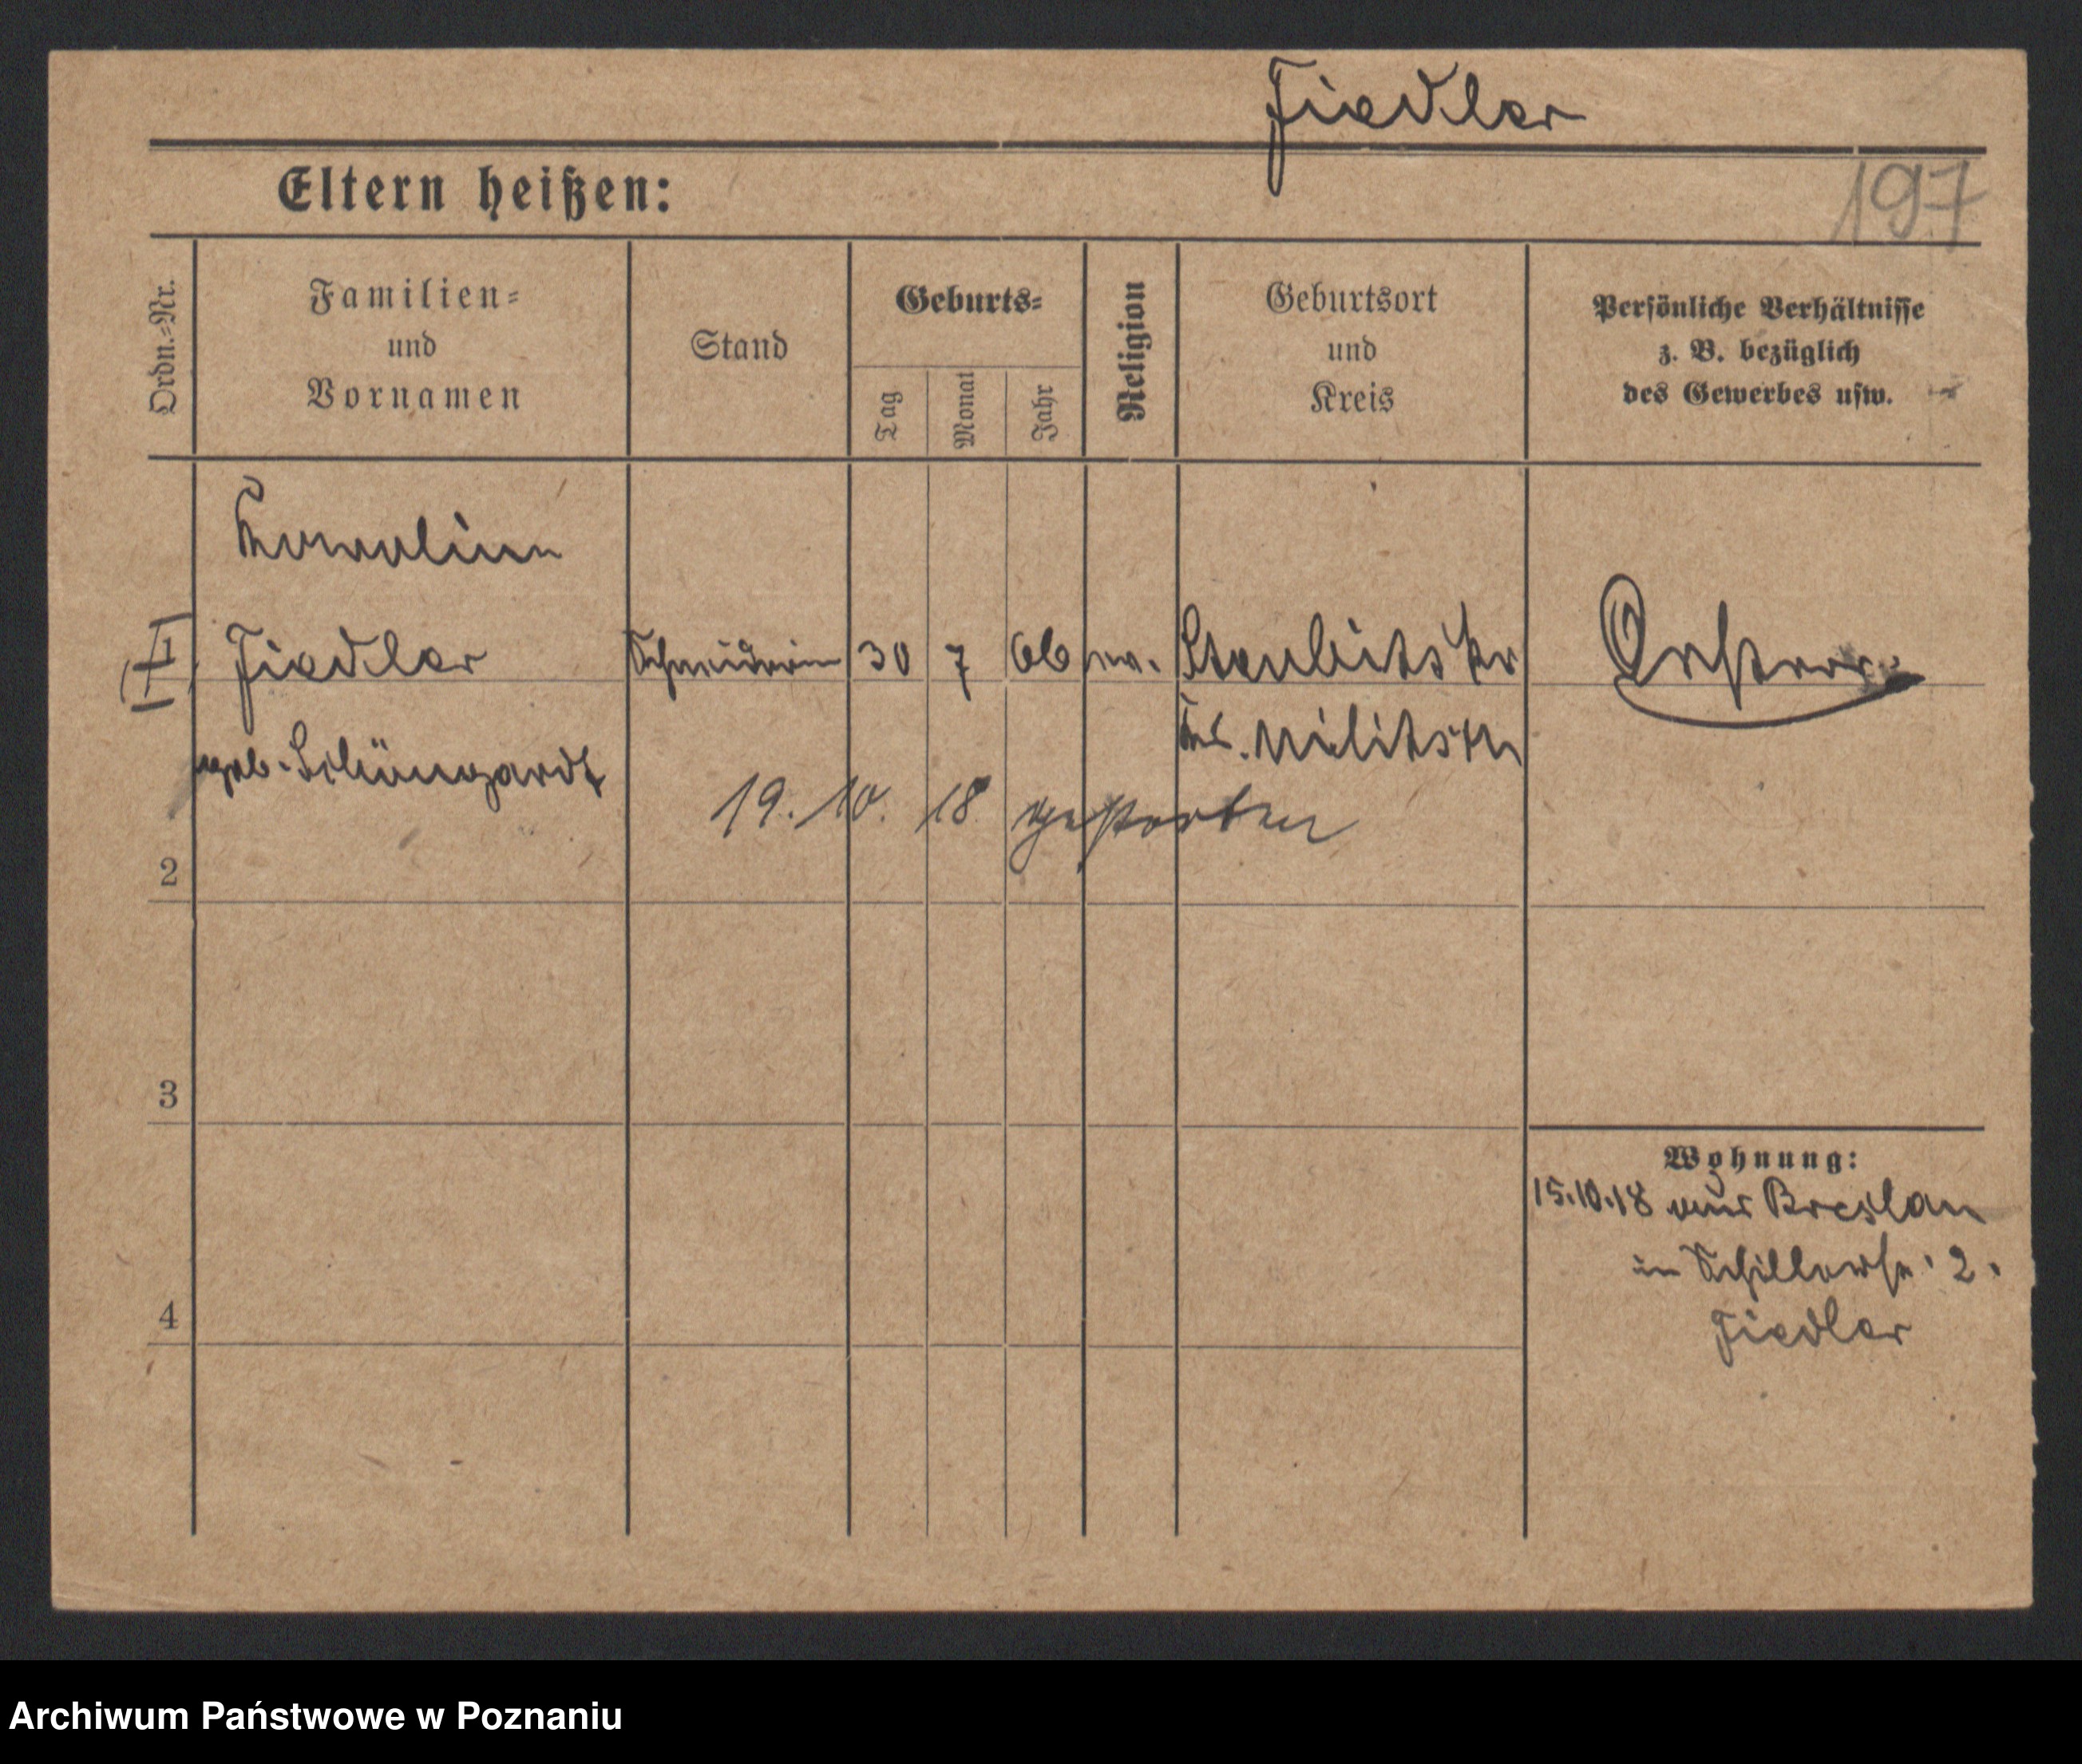 Fiedler
Eltern heißen:
197
Ordn.-Nr.
Familien-
und
Vornamen
Stand
Geburts-
Tag
Monat
Jahr
Religion
Geburtsort
und
Kreis
Persönliche Verhältnisse
z. B. bezüglich
des Gewerbes usw.
Fiedler Schneiderin 30 7 66 ev.
geb.
19. 10. 18 gestorben
2
3
4
Wohnung:
15.10.18 aus Breslau
in Schillerstr. 2.
Fiedler
Archiwum Państwowe w Poznaniu